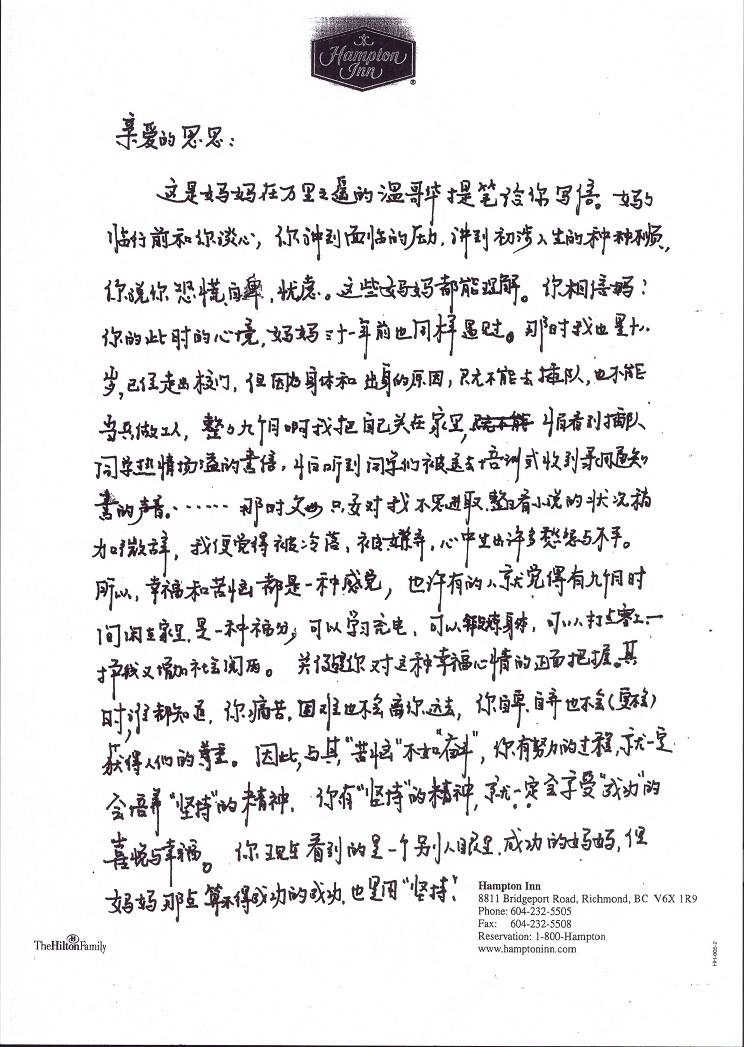 Hampton
Inn
®
亲爱的思思:
这是妈妈在万里之遥的温哥华提笔给你写信。妈妈
临行前和你谈心,你讲到面临的压力,讲到初涉人生的种种不顺,
你说你恐慌,自卑,忧虑。这些妈妈都能理解。你相信吗?
你的此时的心境,妈妈三十一年前也同样遇过。那时我也是十八
岁,已经走出校门,但因为身体和出身的原因,既不能去插队,也不能
当兵做工人,整个九个月啊我把自己关在家里, 看到插队
同学热情洋溢的书信, 听到同学们被送去培训或收到录取通知
书的声音。…… 那时父母只要对我不思进取,整日看小说的状况稍
加微辞,我便觉得被冷落、被嫌弃,心中生出许多愁怨与不平。
所以,幸福和苦恼都是一种感觉,也许有的人就觉得有九个月时
间闲在家里,是一种福分,可以学习充电,可以锻炼身体,可以打点零工一
择我又增加社会阅历。关键是你对这种幸福心情的正面把握。其
时,谁都知道,你痛苦,困难也不会离你远去,你自卑、自弃也不会(更不会)
获得人们的尊重。因此,与其“苦恼”不如“奋斗”,你有努力的过程,就一定
会培养“坚持”的精神,你有“坚持”的精神,就一定会享受“成功”的
喜悦与幸福。你现在看到的是一个别人眼里,成功的妈妈,但
妈妈那点算不得成功的成功,也是因“坚持”
Hampton Inn
8811 Bridgeport Road, Richmond, BC V6X 1R9
Phone: 604-232-5505
Fax: 604-232-5508
Reservation: 1-800-Hampton
www.hamptoninn.com
TheHiltonFamily
HH-005-2